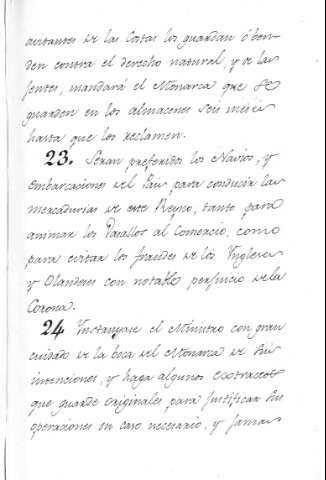 avitantes de las Costas los guardan ó ben-
den contra el derecho natural, y de las
gentes, mandará el Monarca que se
guarden en los almacenes seis meses
hasta que los reclamen.
23. Seran preferidos los Navios, y
embarcaciones del Pais para conducir las
mercadurias de este Reyno, tanto para
animar los Vasallos al Comercio, como
para evitar los fraudes de los Yngleses
y Olandeses con notable perjuicio de la
Corona.
24 Ynstruyase el Ministro con gran
cuidado de la boca del Monarca de sus
intenciones, y haga algunos extractos
que guarde originales para justificar sus
operaciones en caso necesario, y jamas